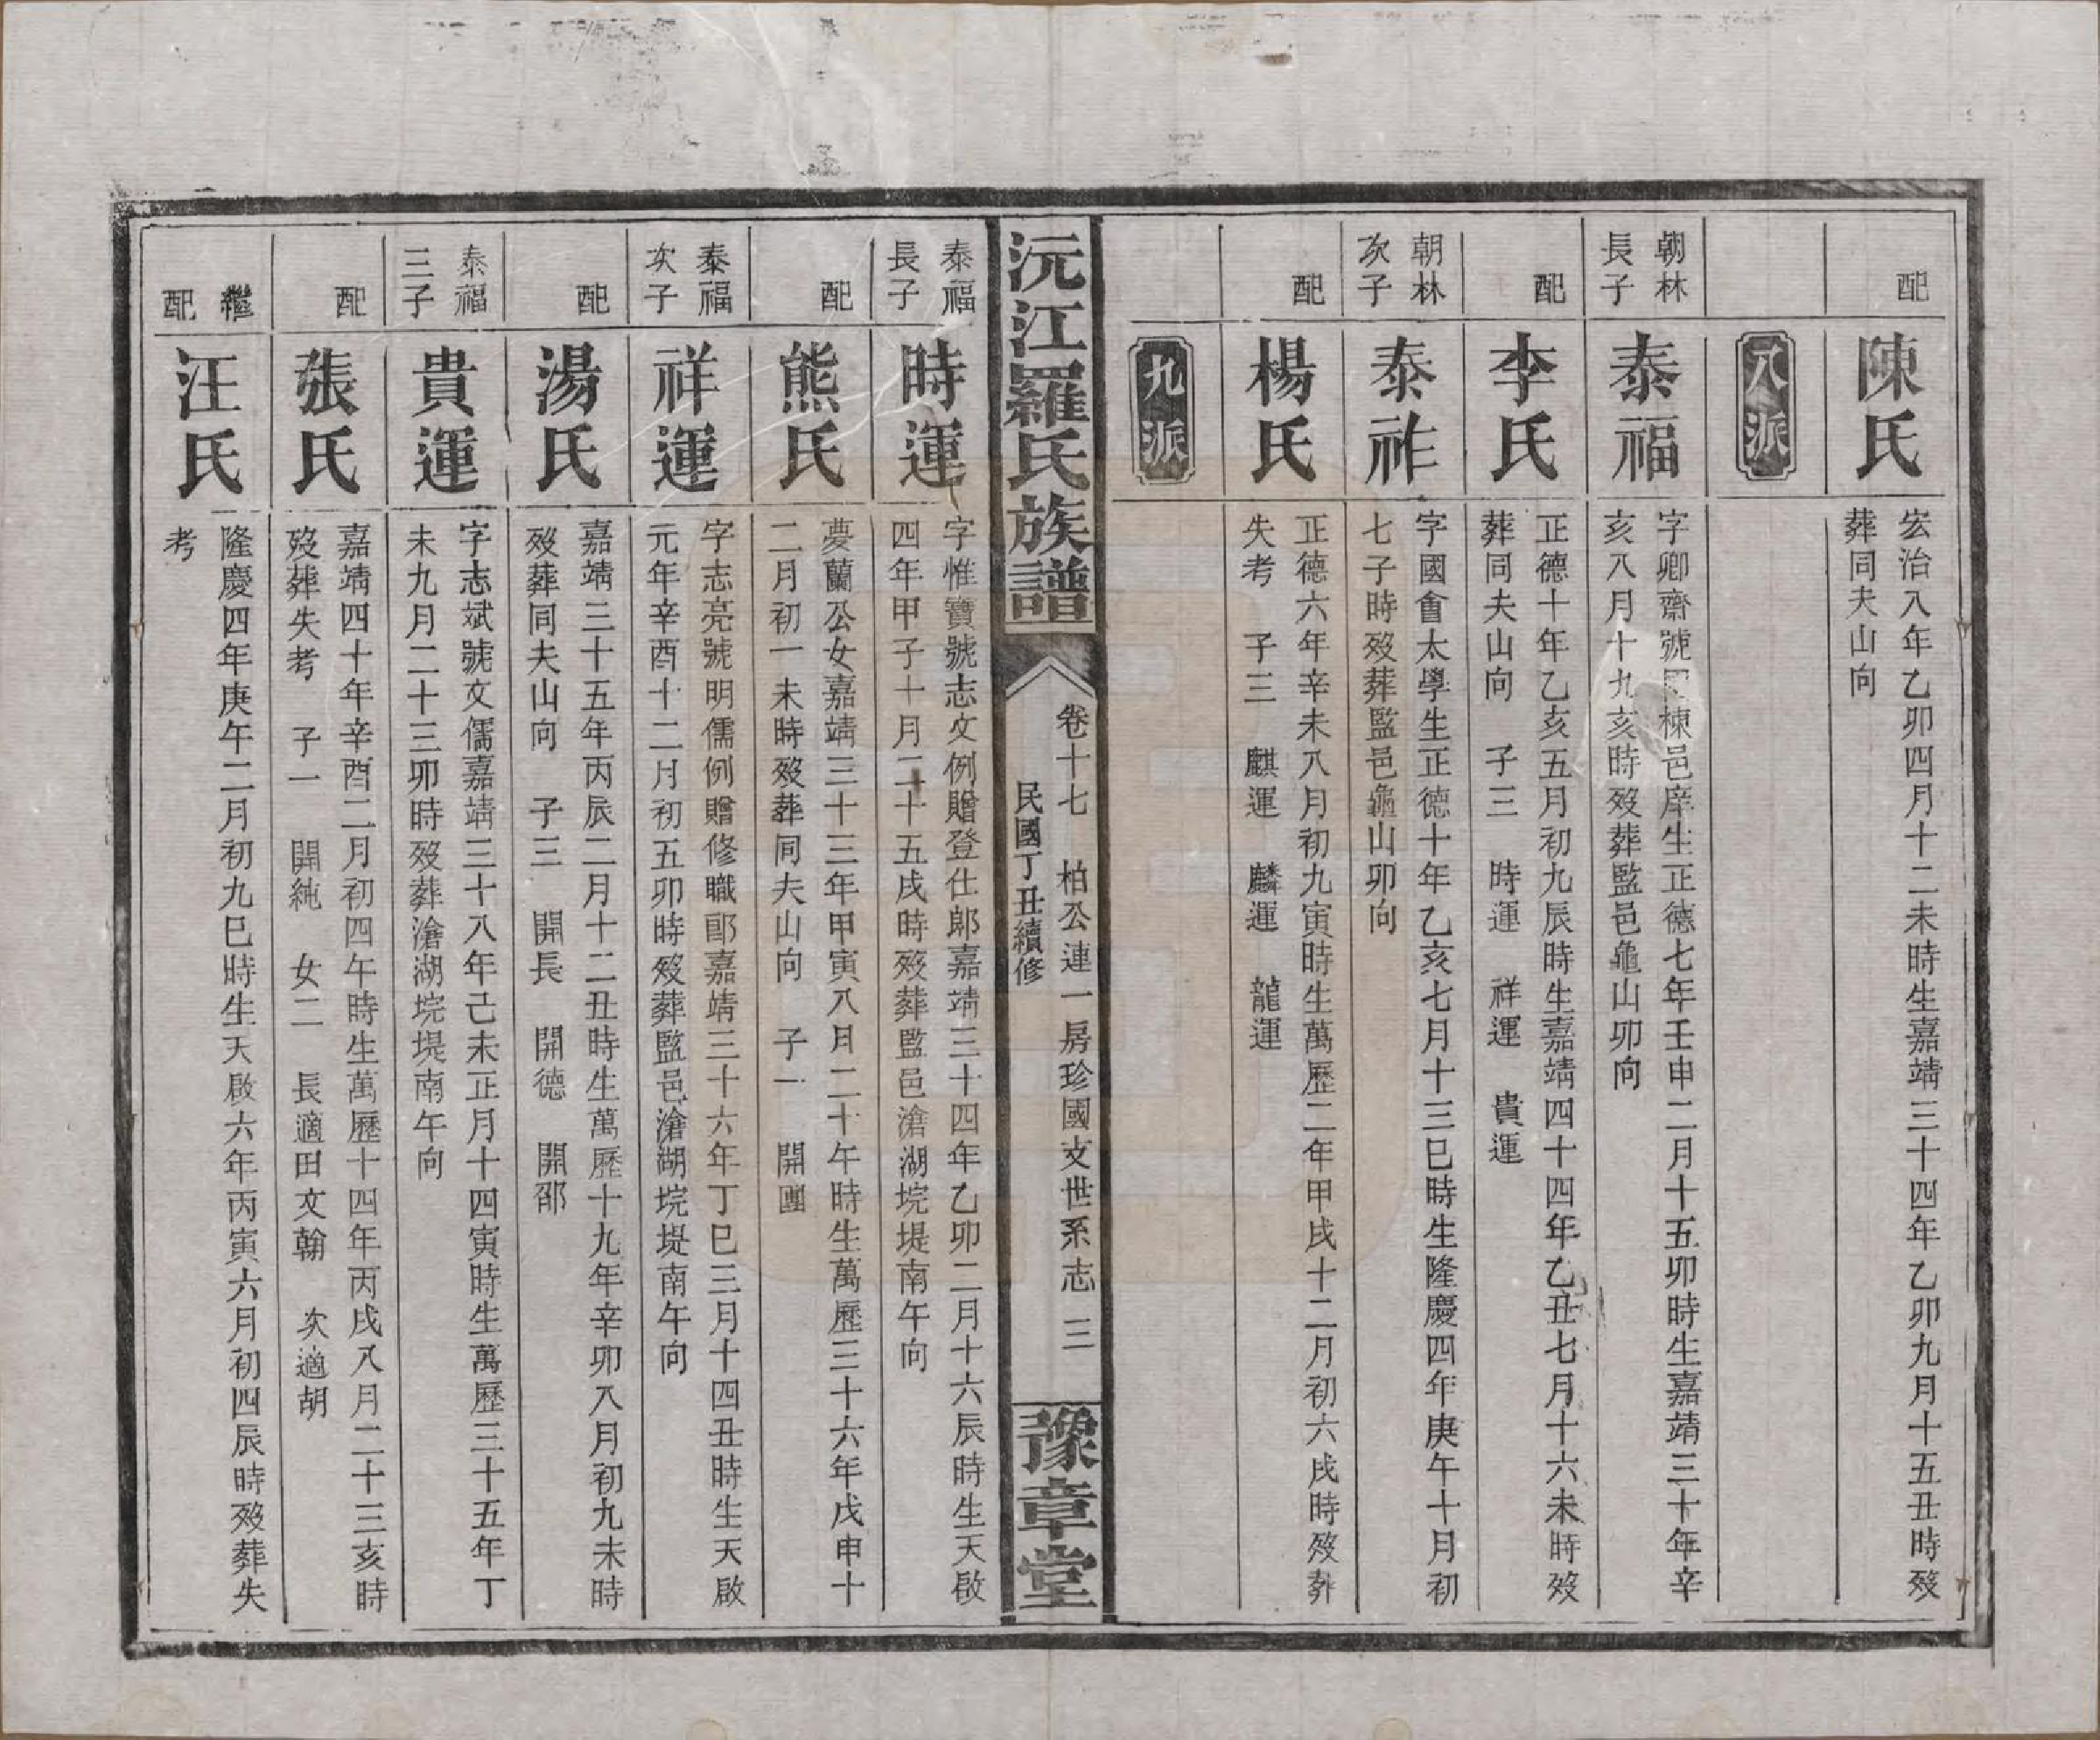 配
陳氏
宏治八年乙卯四月十二未時生嘉靖三十四年乙卯九月十五丑時歿
葬同夫山向
八派
朝林
長子
泰福
字卿齋號 棟邑庠生正德七年壬申二月十五卯時生嘉靖三十年辛
亥八月十九亥時歿葬監邑龜山卯向
配
李氏
正德十年乙亥五月初九辰時生嘉靖四十四年乙丑七月十六未時歿
葬同夫山向 子三 時運 祥運 貴運
朝林
次子
泰祚
字國會太學生正德十年乙亥七月十三巳時生隆慶四年庚午十月初
七子時歿葬監邑龜山卯向
配
楊氏
正德六年辛未八月初九寅時生萬歷二年甲戌十二月初六戌時歿葬
失考 子三 麒運 麟運 龍運
九派
沅江羅氏族譜
卷十七 柏公連一房珍國支世系志 三
民國丁丑續修
豫章堂
泰福
長子
時運
字惟寶號志文例贈登仕郎嘉靖三十四年乙卯二月十六辰時生天啟
四年甲子十月二十五戌時歿葬監邑滄湖垸堤南午向
配
熊氏
夢蘭公女嘉靖三十三年甲寅八月二十午時生萬歷三十六年戊申十
二月初一未時歿葬同夫山向 子一 開團
泰福
次子
祥運
字志亮號明儒例贈修職郎嘉靖三十六年丁巳三月十四丑時生天啟
元年辛酉十二月初五卯時歿葬監邑滄湖垸堤南午向
配
湯氏
嘉靖三十五年丙辰二月十二丑時生萬歷十九年辛卯八月初九未時
歿葬同夫山向 子三 開長 開德 開邵
泰福
三子
貴運
字志斌號文儒嘉靖三十八年己未正月十四寅時生萬歷三十五年丁
未九月二十三卯時歿葬滄湖垸堤南午向
配
張氏
嘉靖四十年辛酉二月初四午時生萬歷十四年丙戌八月二十三亥時
歿葬失考 子一 開純 女二 長適田文翰 次適胡
繼
配
汪氏
隆慶四年庚午二月初九巳時生天啟六年丙寅六月初四辰時歿葬失
考